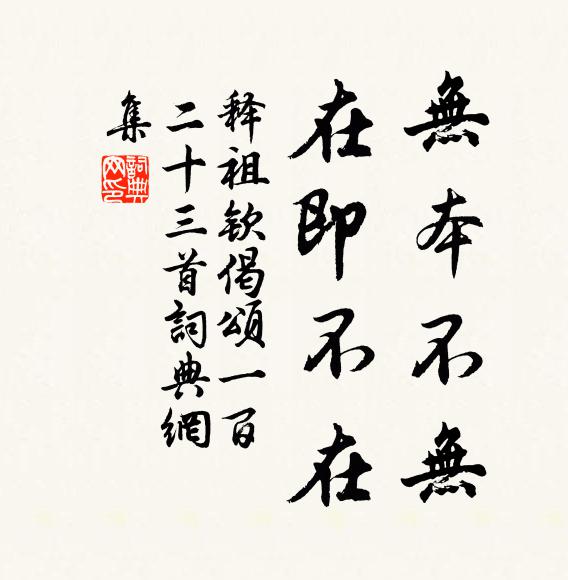 無本不無
在即不在
释祖欽偈頌一百
二十三首詞典網
集
詞典
网印